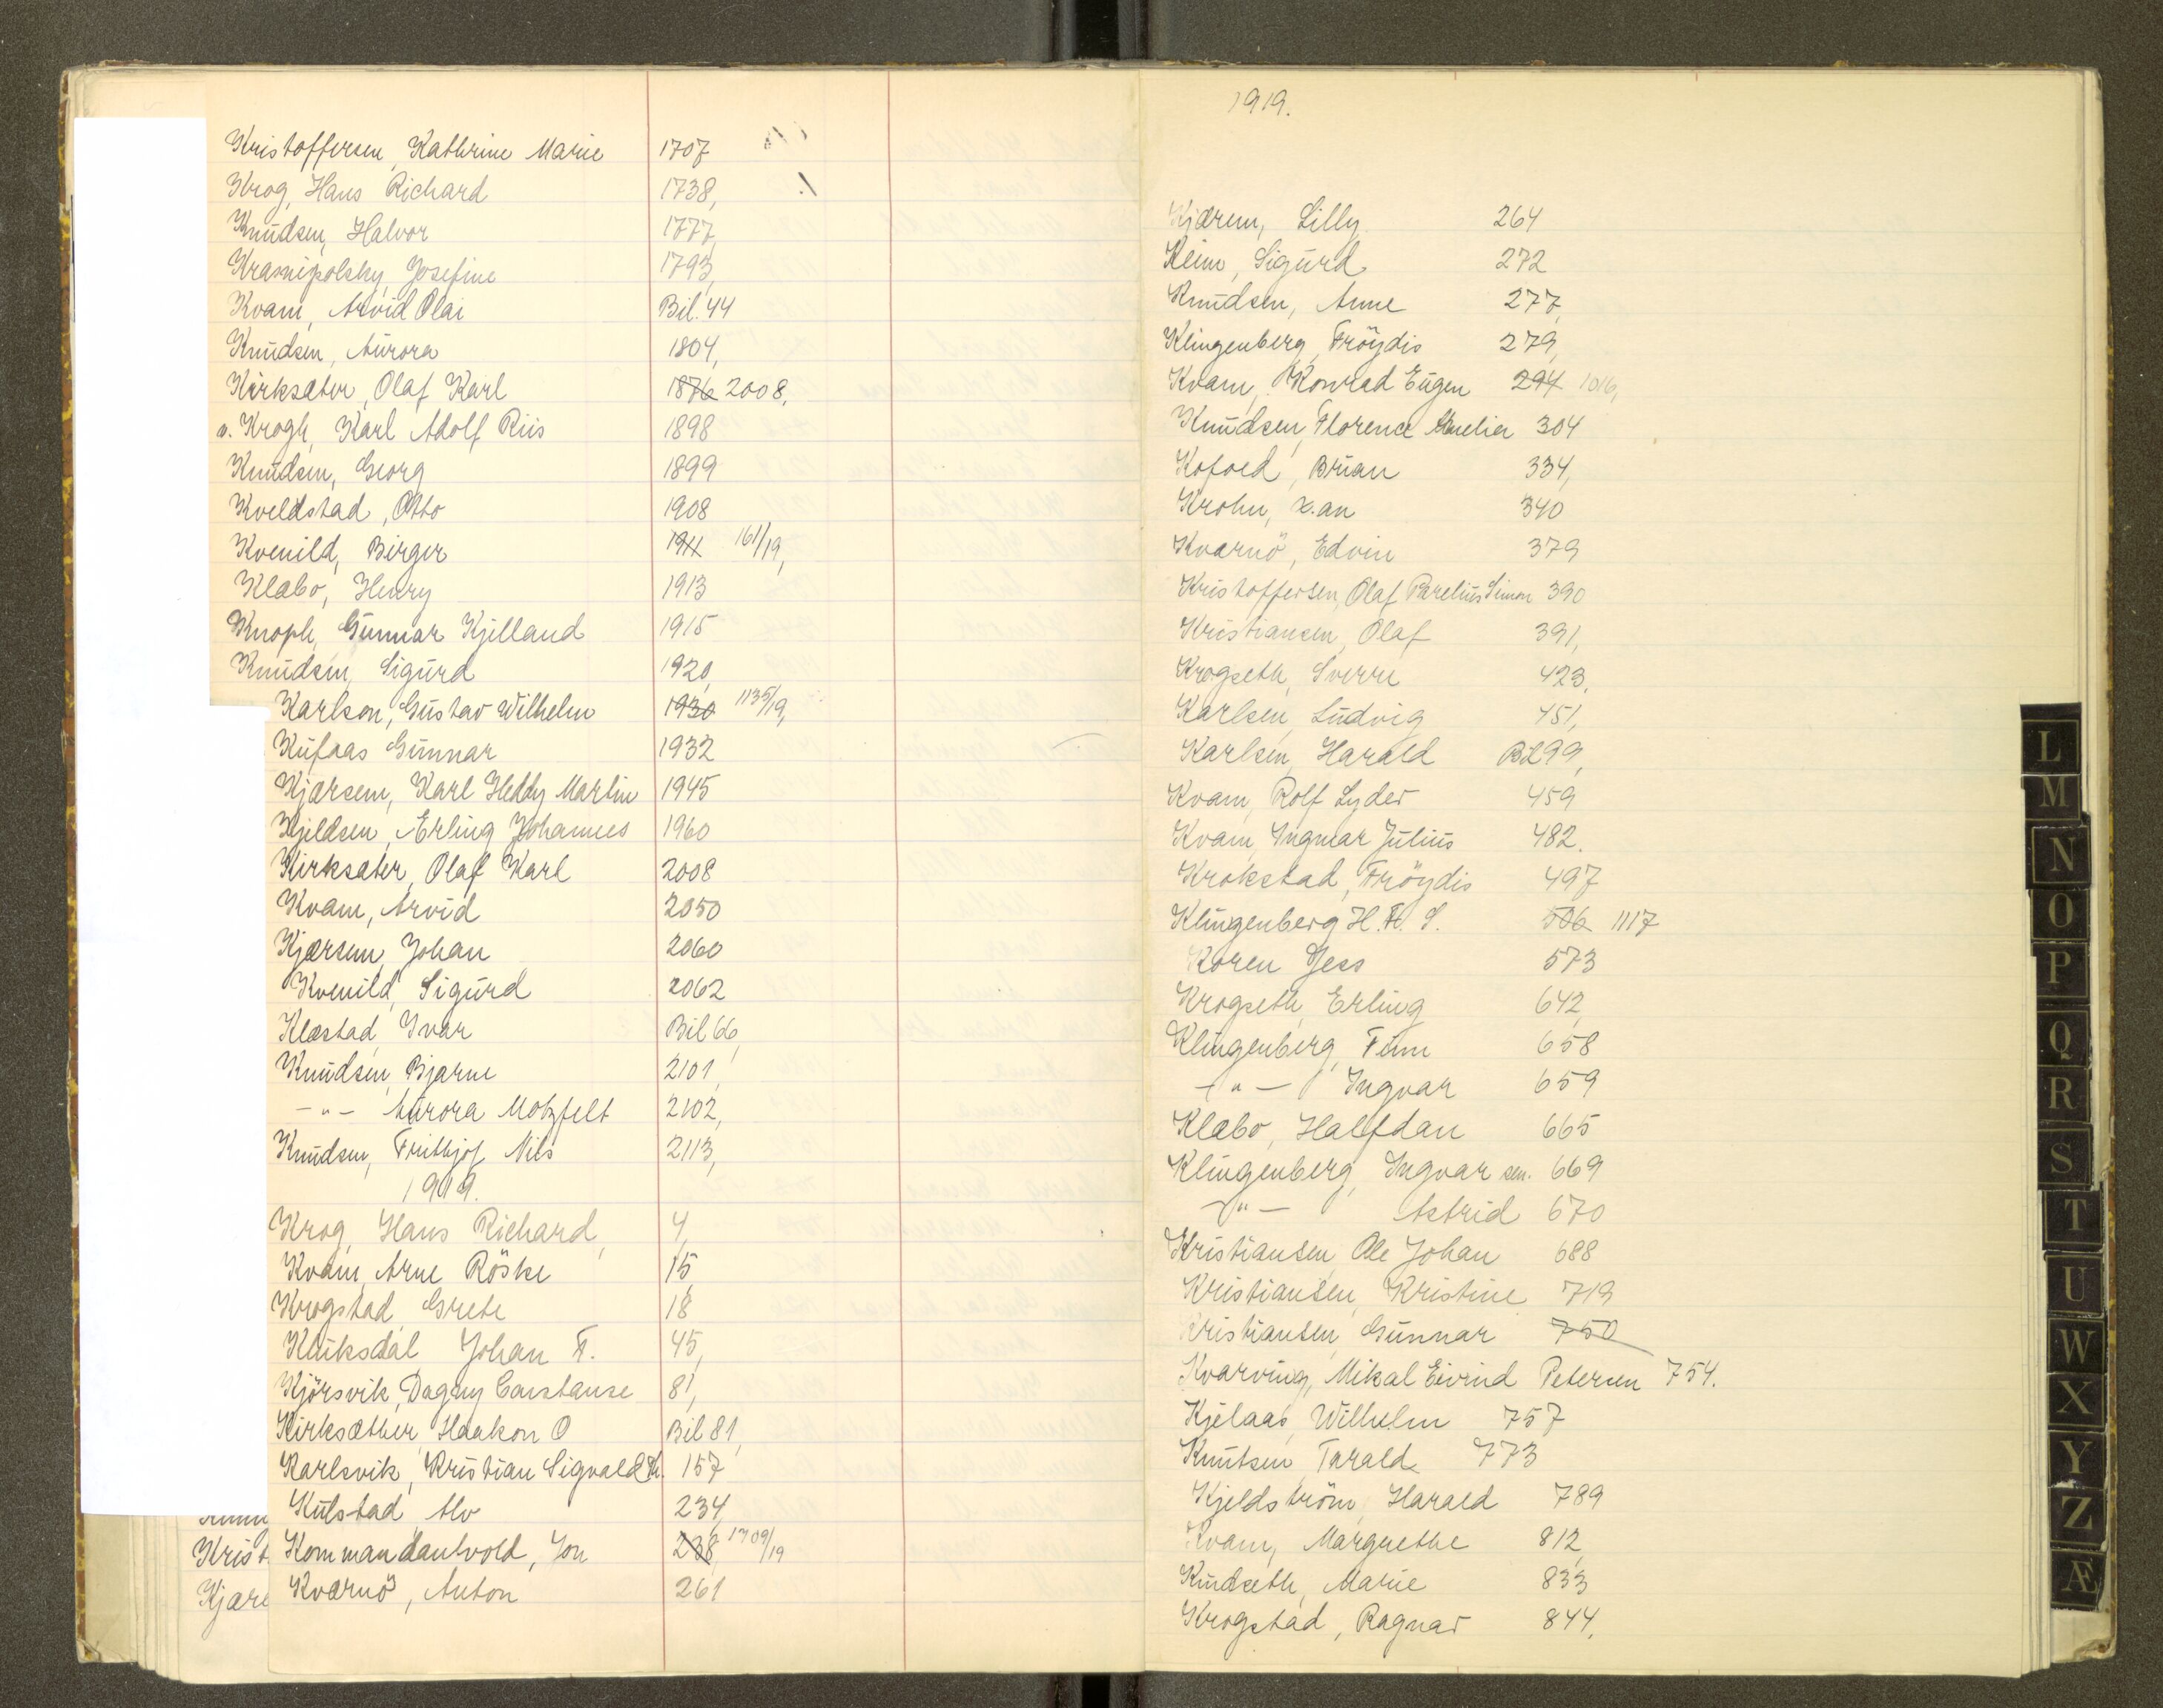 Kristoffersen, Kathrine Marie 1707
Krog, Hans Richard 1738,
Knudsen, Halvor 1777,
Krasnipolsky, Josefine 1793,
Kvam, Arvid Olai Bil. 44
Knudsen, Aurora 1804,
Kirksæter, Olaf Karl 1876 2008,
v. Krogh, Karl Adolf Riis 1898
Knudsen, Georg 1899
Kveldstad, Otto 1908
Kvenild, Birger 1911 161/19,
Klæbo, Henry 1913
Knoph, Gunnar Kjelland 1915
Knudsen, Sigurd 1920,
Karlson, Gustav Wilhelm 1930 1135/19,
Kufaas Gunnar 1932
Kjærsem, Karl Heddy Martin 1945
Kjeldsen, Erling Johannes 1960
Kirksæter, Olaf Karl 2008
Kvam, Arvid 2050
Kjærsem, Johan 2060
Kvenild, Sigurd 2062
Klæstad, Ivar Bil 66,
Knudsen, Bjarne 2101,
-"- Aurora Motzfelt 2102,
Knudsen, Frithjof Nils 2113,
1919.
Krog, Hans Richard, 4,
Kvam, Arne Röske 15,
Krogstad, Grete 18
Kluksdal Johan F. 45,
Kjörsvik, Dagny Constanse 81,
Kirksæther, Haakon O Bil 81,
Karlsvik, Kristian Sigvald Th. 157
Kulstad, Alv 234,
Krist
Kommandantvold, Jon 238, 1709/19
Kjære
Kværnö, Anton 261
1919.
Kjærem, Lilly 264
Keim, Sigurd 272
Knudsen, Anne 277,
Klingenberg, Fröydis 279,
Kvam, Konrad Eugen 294 1016,
Knudsen, Florence Amelia 304
Kofoed, Brian 334,
Krohn, X.an 340
Kværnö, Edvin 379
Kristoffersen, Olaf Parelius Simon 390
Kristiansen, Olaf 391,
Krogseth, Sverre 423,
Karlsen, Ludvig 451,
Karlsen, Harald Bil 99,
Kvam, Rolf Lyder 459
Kvam, Ingmar Julius 482.
Krokstad, Fröydis 497
Klingenberg H. F. S. 506 1117
Koren Jess 573
Krogseth, Erling 642,
Klingenberg, Finn 658
-"- Ingvar 659
Klæbo, Halfdan 665
Klingenberg, Ingvar sen. 669
-"- Astrid 670
Kristiansen, Ole Johan 688
Kristiansen, Kristine 719
Kristiansen, Gunnar 750
Kvarving, Mikal Eivind Petersen 754.
Kjelaas, Wilhelm 757
Knutsen, Tarald 773
Kjeldström, Harald 789
Kvam, Margrethe 812,
Kindseth, Marie 833
Krogstad, Ragnar 844,
L
M
N
O
P
Q
R
S
T
U
W
X
Y
Z
Æ